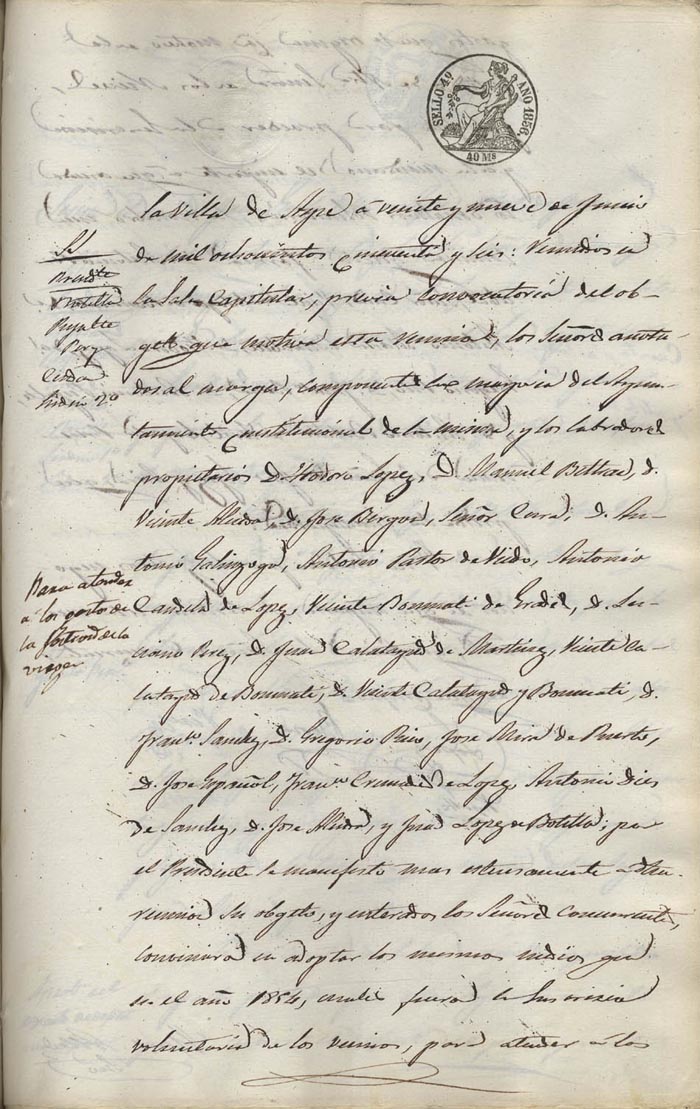 SELLO 4º AÑO 1856.
40 Ms
la Villa de Aspe á veinte y nueve de Junio
de mil ochocientos cincuenta y seis: Reunidos en
la Sala Capitular, previa convocatoria del ob-
geto que motiva esta reunion, los Señores anota-
dos al margen, componentes la mayoria del Ayun-
tamiento Constitucional de la misma, y los labradores
propietarios D. Teodoro Lopez, D. Manuel Beltran, D.
Vicente Alcaraz D. Jose Bergva, Señor Cura; D. An-
tonio Galinzoga, Antonio Pastor de Vicedo, Antonio
Candela de Lopez, Vicente Bonmati de Gradel, D. Lu-
ciano Perez, D. Juan Calatayud de Martinez, Vicente Ca-
latayud de Bonmati, D. Vicente Calatayud y Bonmati, D.
Franco. Sanchez, D. Gregorio Rico, Jose Mira de Puerto,
D. Jose Español, Franco. Candela de Lopez, Antonio Dies
de Sanchez, D. Jose Alcaraz, y Juan Lopez de Botella; por
el Presidente se manifesto mas estensamente a dha.
reunion su obgeto, y enterados los Señores concurrentes,
convinieron en adoptar los mismos medios que
en el año 1854, cuales fueron la suscricion
voluntaria de los vecinos, para atender á los
SS
Presidte
Botella
Perez
Cerdan
Para atender
á los gastos de
la festividad de la
virgen